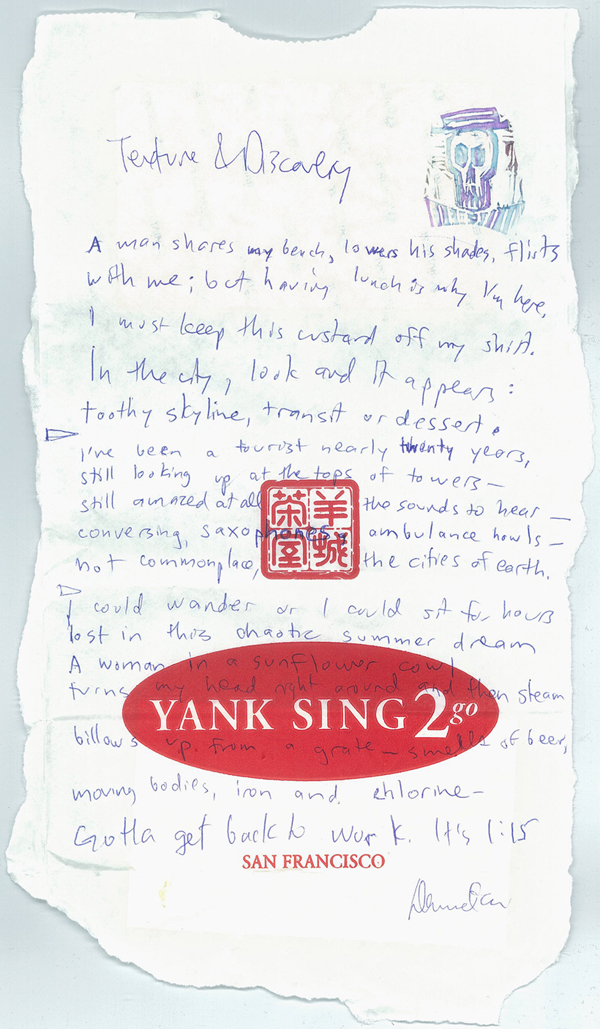 Texture & Discovery
A man shares my bench, lowers his shades, flirts
with me; but having lunch is why I'm here,
I must keep this custard off my shirt.
In the city, look and it appears:
toothy skyline, transit or dessert.
I've been a tourist nearly twenty years,
still looking up at the tops of towers—
still amazed at all the sounds to hear—
conversing, saxophones, ambulance howls—
not commonplace, the cities of earth.
茶羊
室城
I could wander or I could sit for hours
lost in this chaotic summer dream
A woman in a sunflower cowl
turns my head right around and then steam
YANK SING 2go
billows up from a grate—smells of beer,
moving bodies, iron and chlorine—
Gotta get back to work. It's 1:15
SAN FRANCISCO